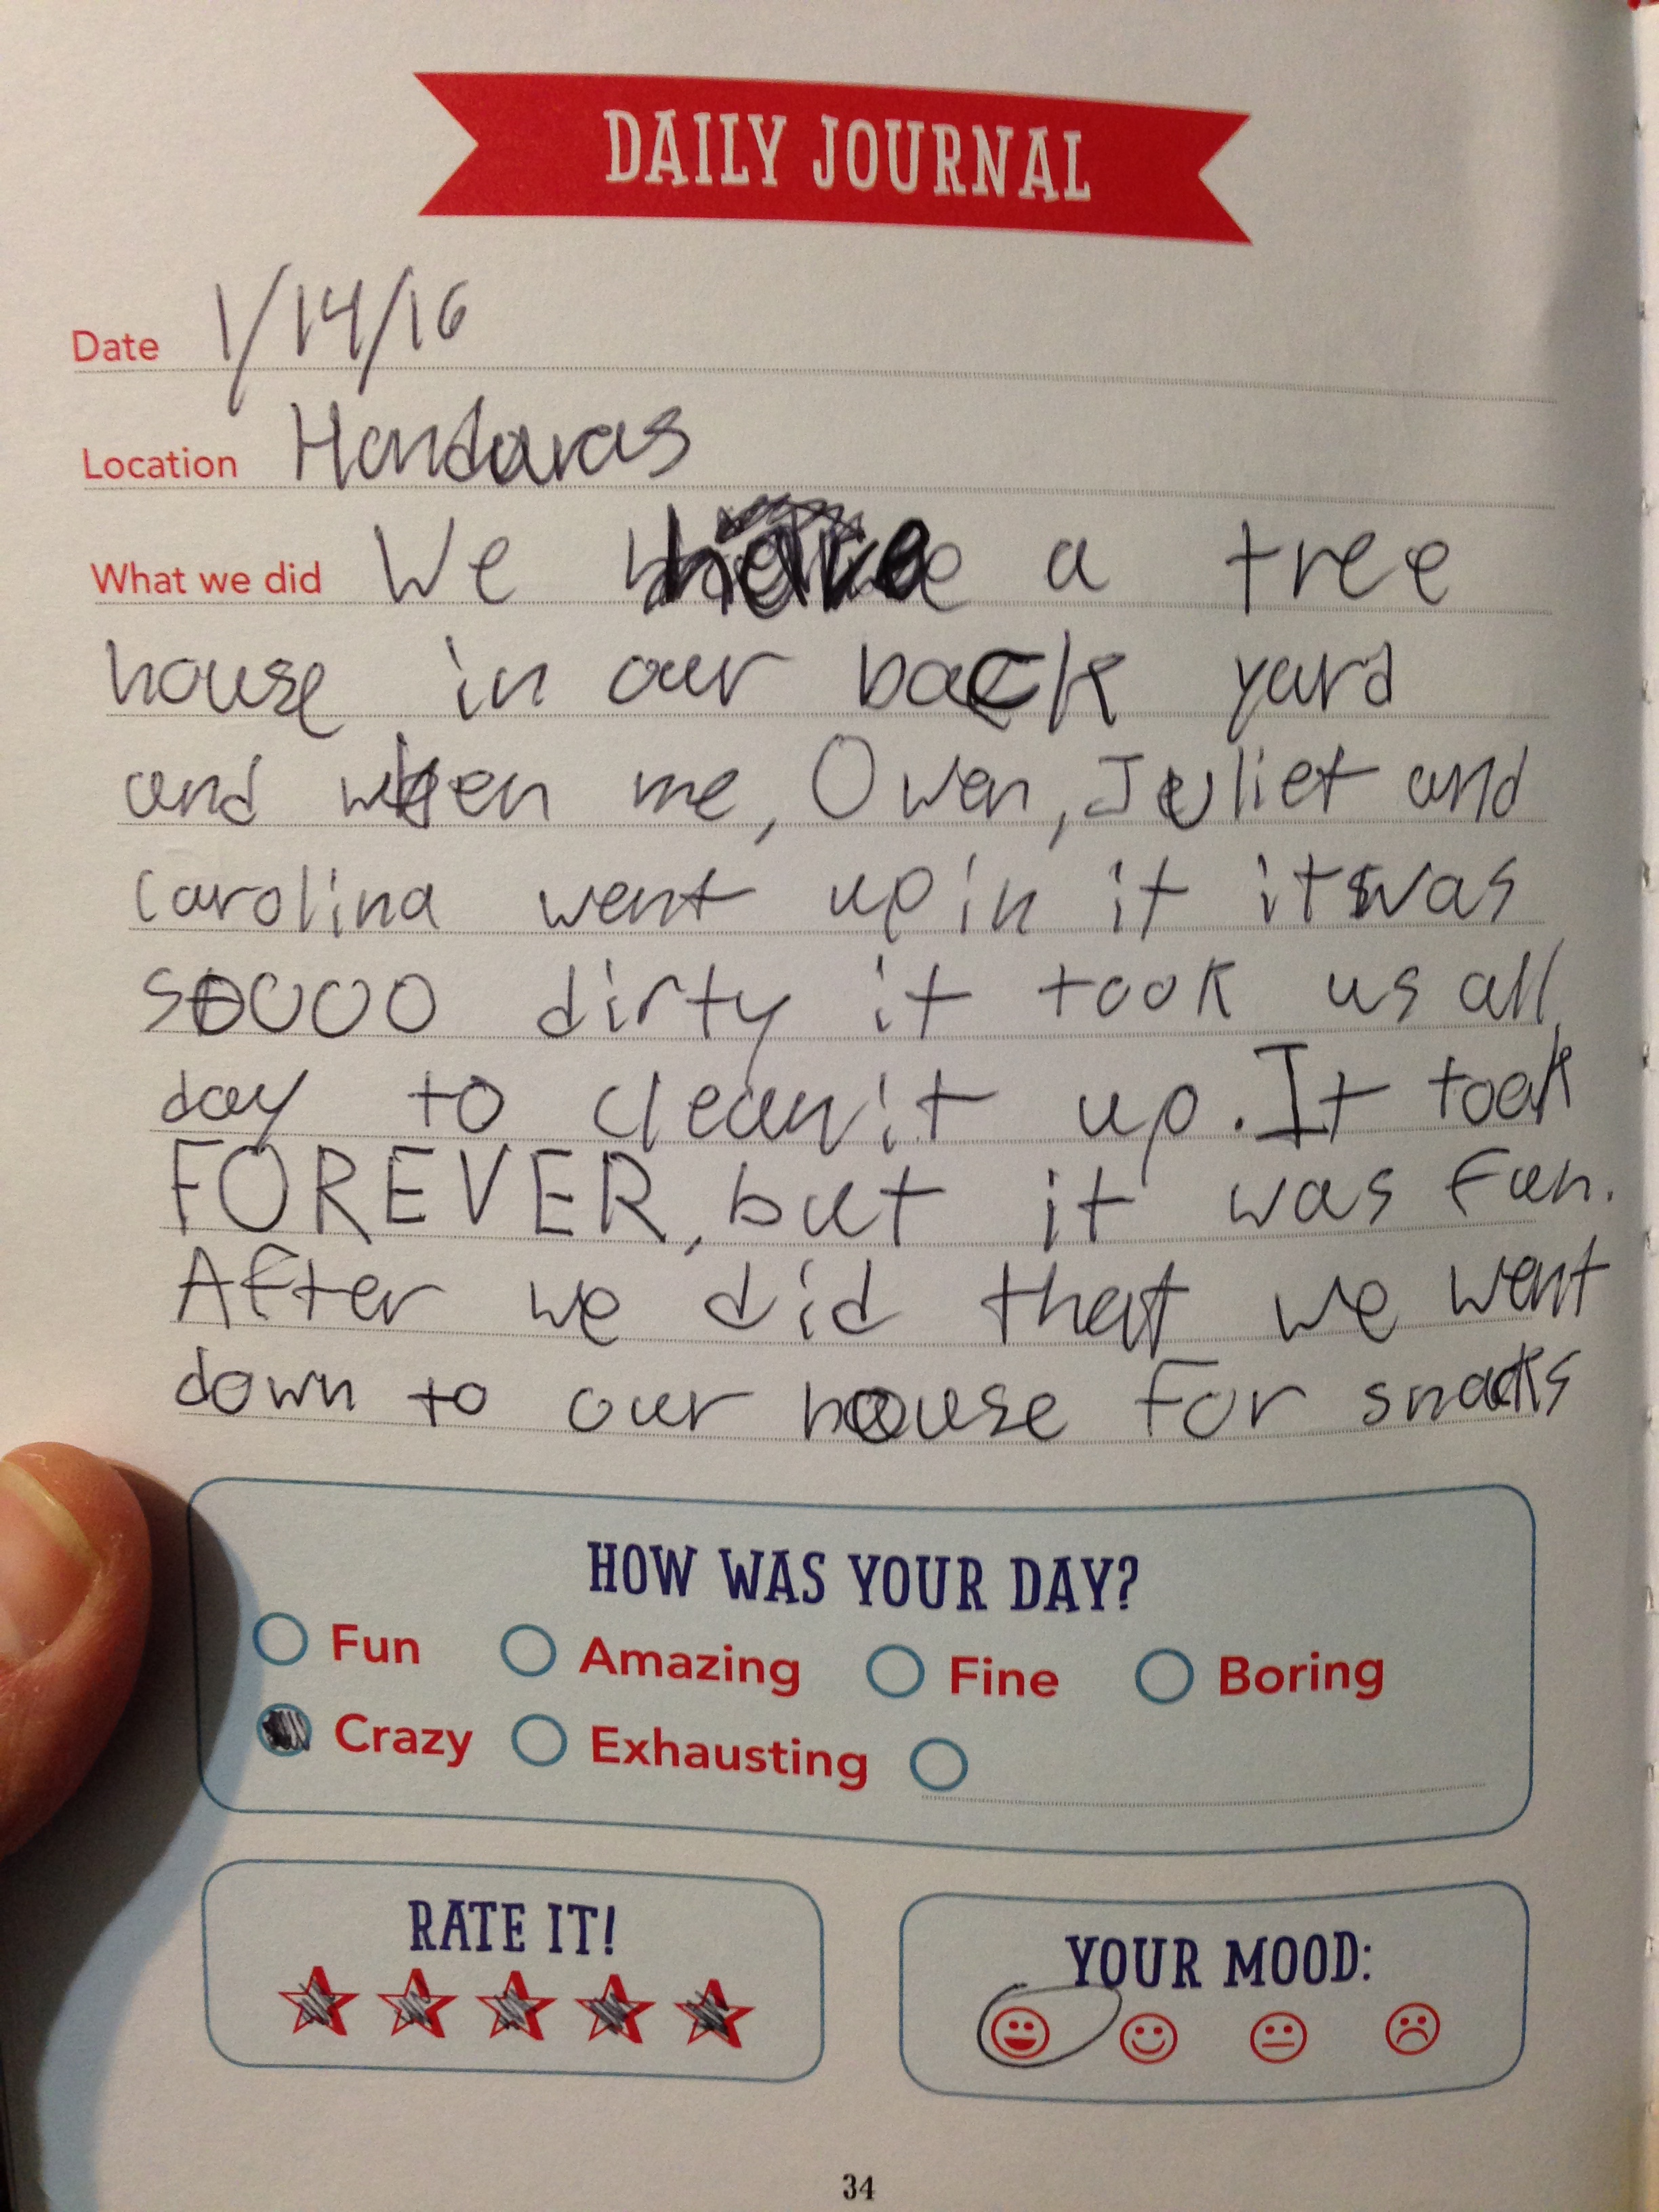 DAILY JOURNAL
Date 1/14/16
Location Hondaras
What we did We have a tree
house in our back yard
and when me, Owen, Juliet and
Carolina went up in it it was
sooooo dirty it took us all
day to clean it up. It took
FOREVER, but it was fun.
After we did that we went
down to our house for snacks
HOW WAS YOUR DAY?
Fun Amazing Fine Boring
Crazy Exhausting
RATE IT!
YOUR MOOD:
34